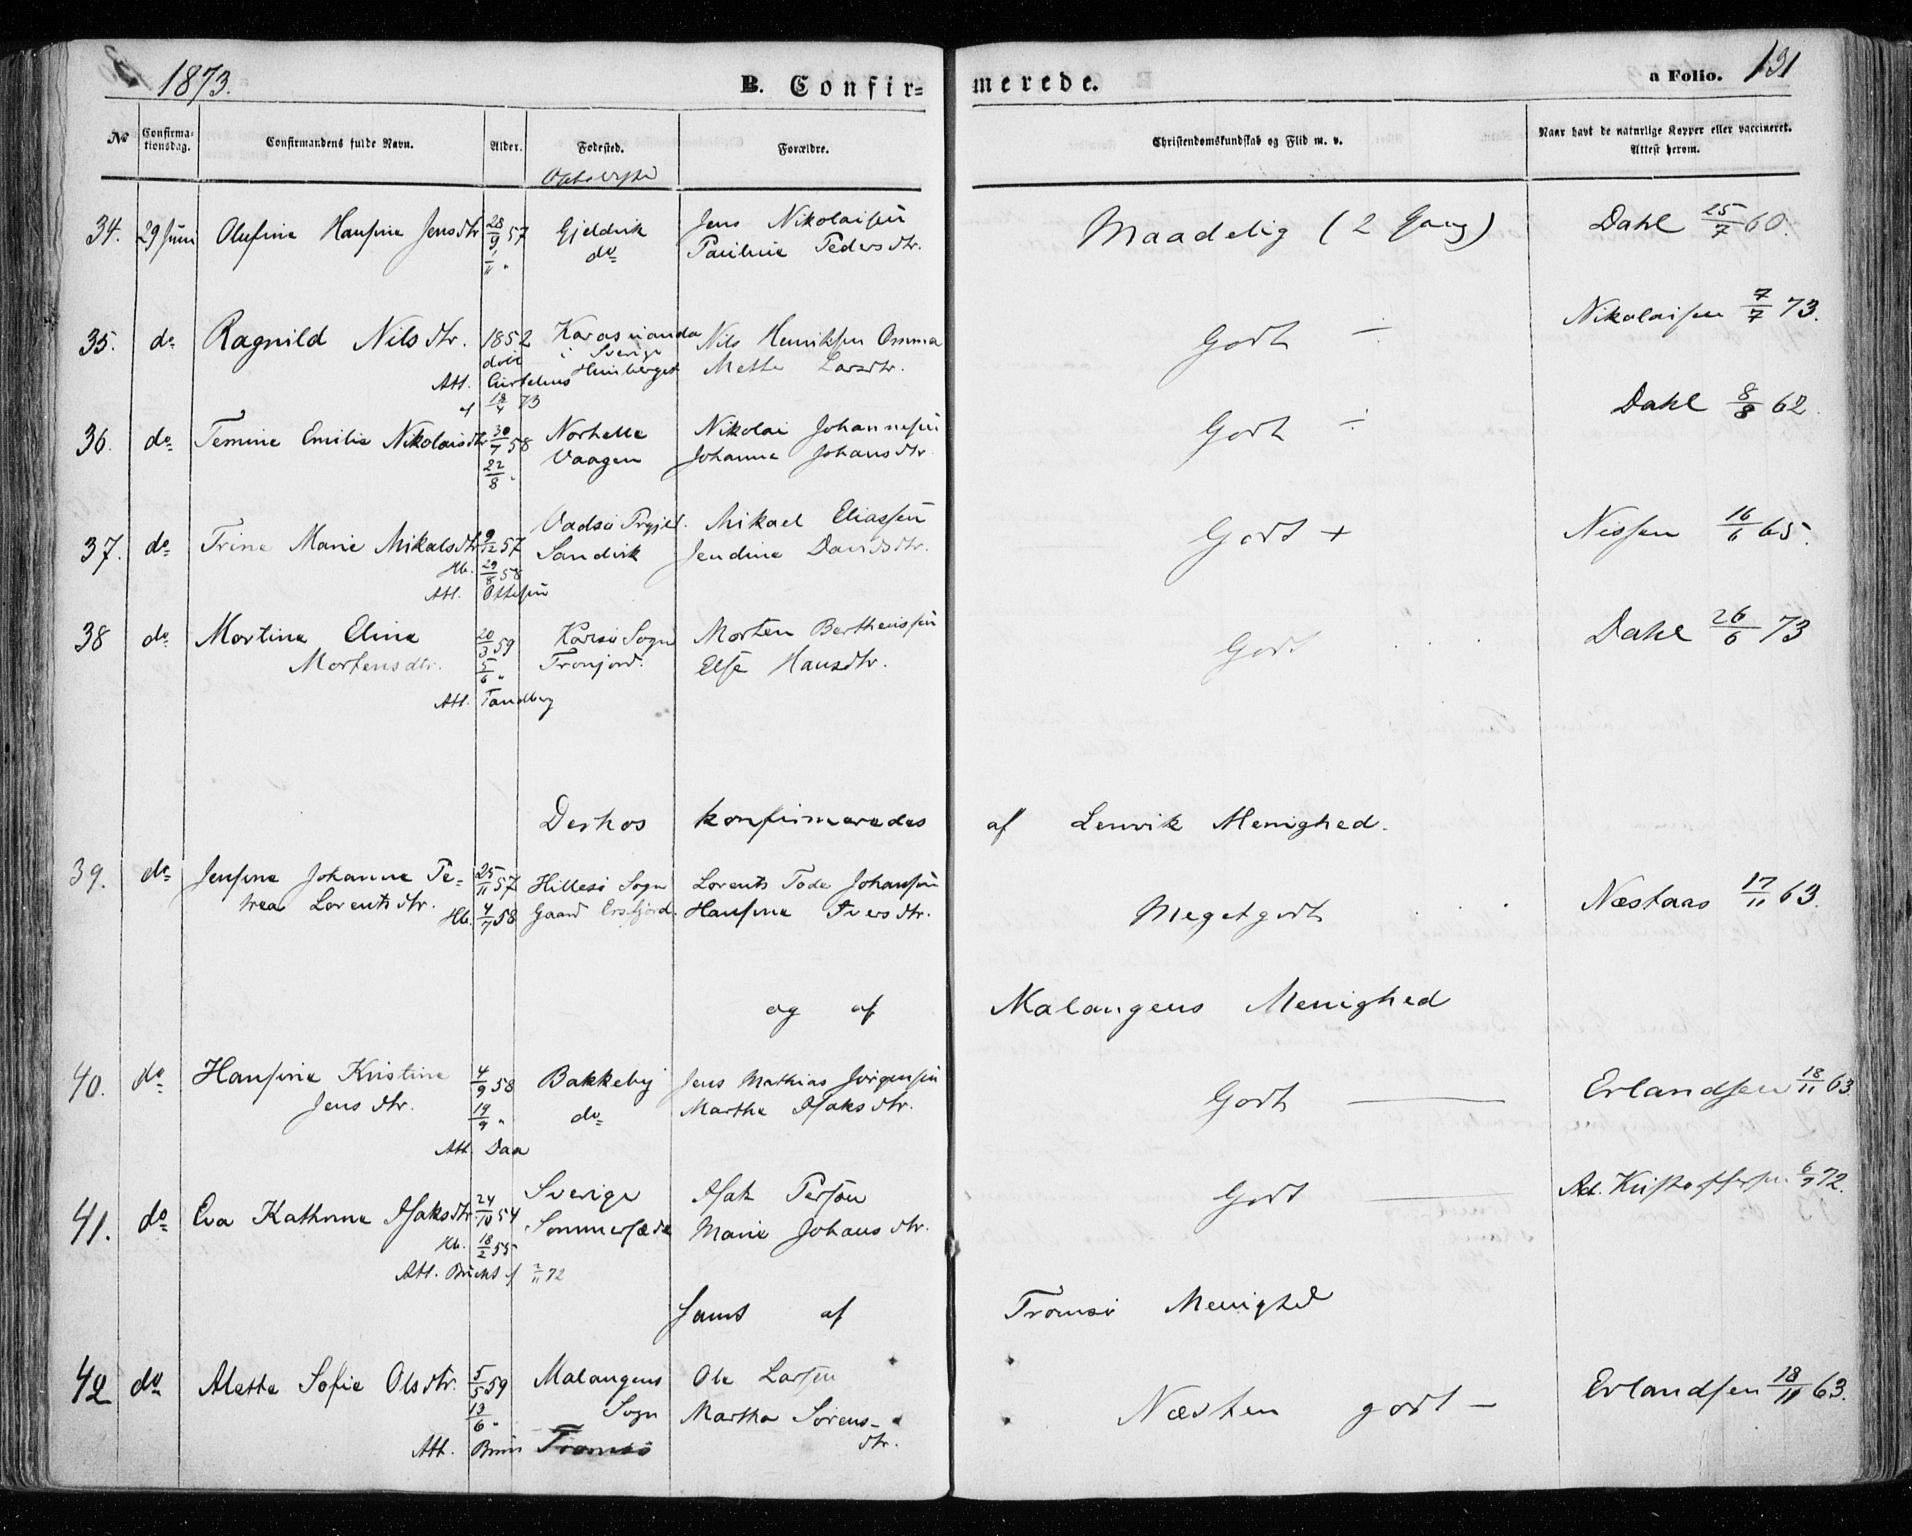 1873.
B. Confir=
merede.
a Folio. 131
No
Confirma=
tionsdag.
Confirmandens fulde Navn.
Alder.
Fødested.
Forældre.
Christendomskundskab og Flid m. v.
Naar havt de naturlige Kopper eller vaccineret.
Attest herom.
34. 29 Juni Olufine Hansine Jensdtr 28/9 57 Gjeldvik Jens Nikolaisen Maadelig (2 Gang) Dahl 25/7 60.
1/11 " do Pauline Pedersdtr.
35. do Ragnild Nilsdtr. 1852 Nils Henriksen Omma Godt ÷ Nikolaisen 7/7 73.
i Sverige
Att. Mette Larsdtr.
af 18/4 73
36. do Temine Emilie Nikolaisdtr 30/7 58 Norhelle Nikolai Johannesen Godt ÷ Dahl 8/8 62
22/8 " Vaagen Johanna Johansdtr
37. do Trine Marie Mikalsdtr 9/12 57 Vadsø Prgjld. Mikael Eliassen Godt + Nissen 16/6 65.
Hb. 29/8 58 Sandvik Jendine Davidsdtr.
Att. Ottesen
38 do Martine Eline 20/3 59 Karlsø Sogn Morten Berthensen Godt Dahl 26/6 73
Mortensdtr. 5/6 " Tronjord. Else Hansdtr.
Att. Tandberg
Deshos konfirmeredes af Lenvik Menighed.
39. do Jensine Johanne Pe= 25/11 57 Hillesø Sogn Lorents Tode Johansen Megetgodt Næstaas 17/11 63.
trea Lorentsdtr. Hb. 4/7 58 Gaard Ersfjord. Hansine Iversdtr.
og af Malangens Menighed
40. do Hansine Kristine 4/9 58 Bakkeby Jens Mathias Jørgensen Godt Erlandsen 18/11 63.
Jensdtr. 19/9 " do Marthe Isaksdtr.
Att. Daa
41. do Eva Kathrine Isaksdtr 24/10 54 Sverige Isak Persøn Godt Ad. Kristoffersen 6/9 72.
Hb. 18/2 55 Sommersæde Marie Johansdtr.
Att. Bucht af 2/11 72
samt af Tromsø Menighed
42 do Alette Sofie Olsdtr. 5/5 59 Malangens Ole Larsen Næsten godt – Erlandsen 18/11 63.
13/6 " Sogn Martha Sørens-
Att. Tromsø dtr.